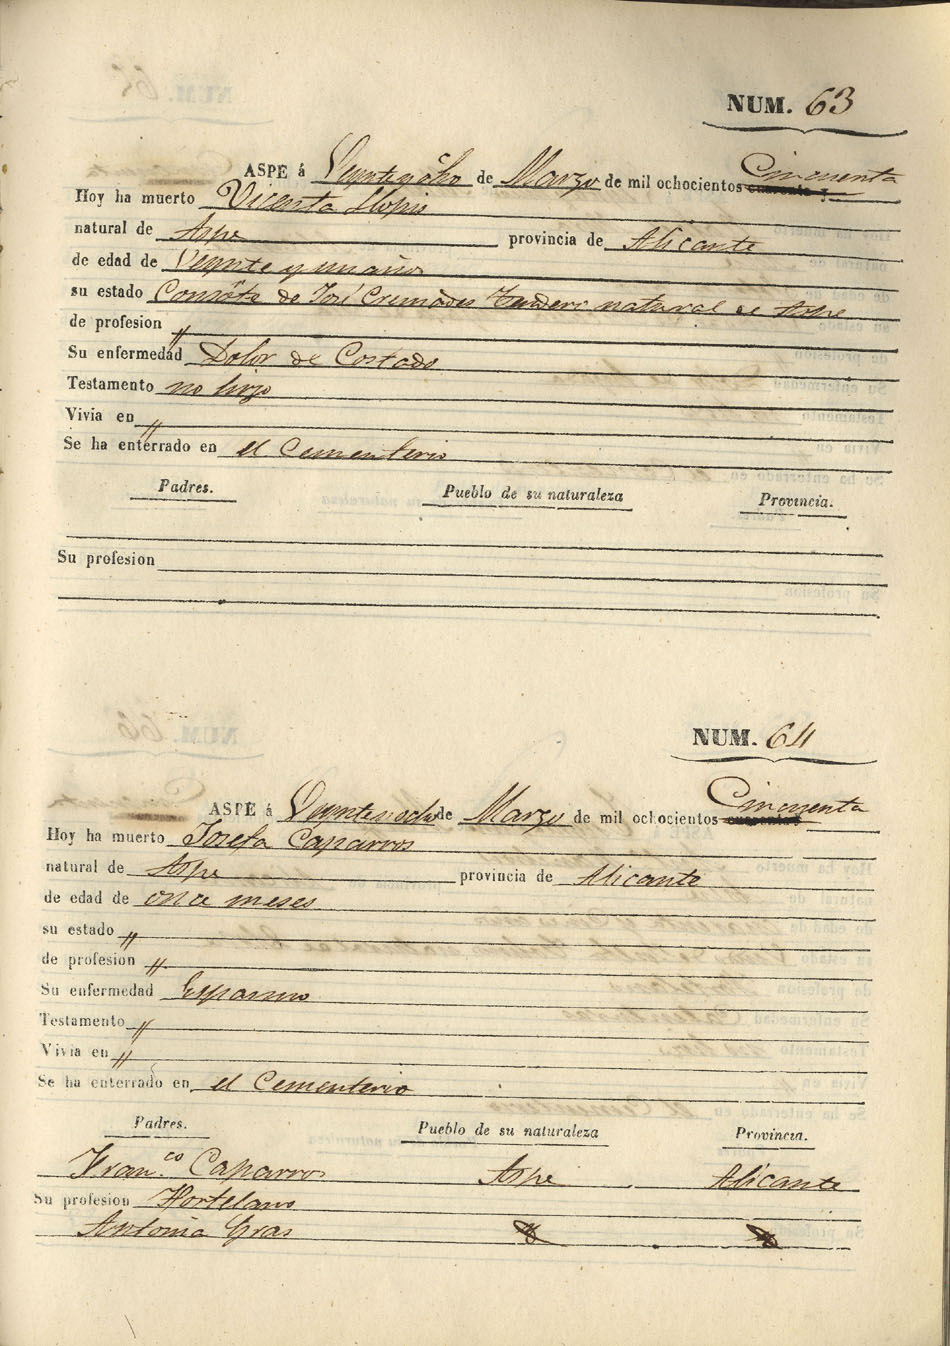 NUM. 63
ASPE á Veynte y ocho de Marzo de mil ochocientos Cincuenta
Hoy ha muerto Vicenta Llopis
natural de Aspe provincia de Alicante
de edad de Veynte y un años
su estado Consorte de José Cremades natural de Aspe
de profesion "
Su enfermedad Dolor de Costado
Testamento no hizo
Vivia en "
Se ha enterrado en el Cementerio
Padres. Pueblo de su naturaleza Provincia.
Su profesion
NUM. 64
ASPE á Veynte y ocho de Marzo de mil ochocientos Cincuenta
Hoy ha muerto Josefa Caparros
natural de Aspe provincia de Alicante
de edad de once meses
su estado "
de profesion "
Su enfermedad Espasmo
Testamento "
Vivia en "
Se ha enterrado en el Cementerio
Padres. Pueblo de su naturaleza Provincia.
Fran.co Caparros Aspe Alicante
Su profesion Hortelano
Antonia Gras